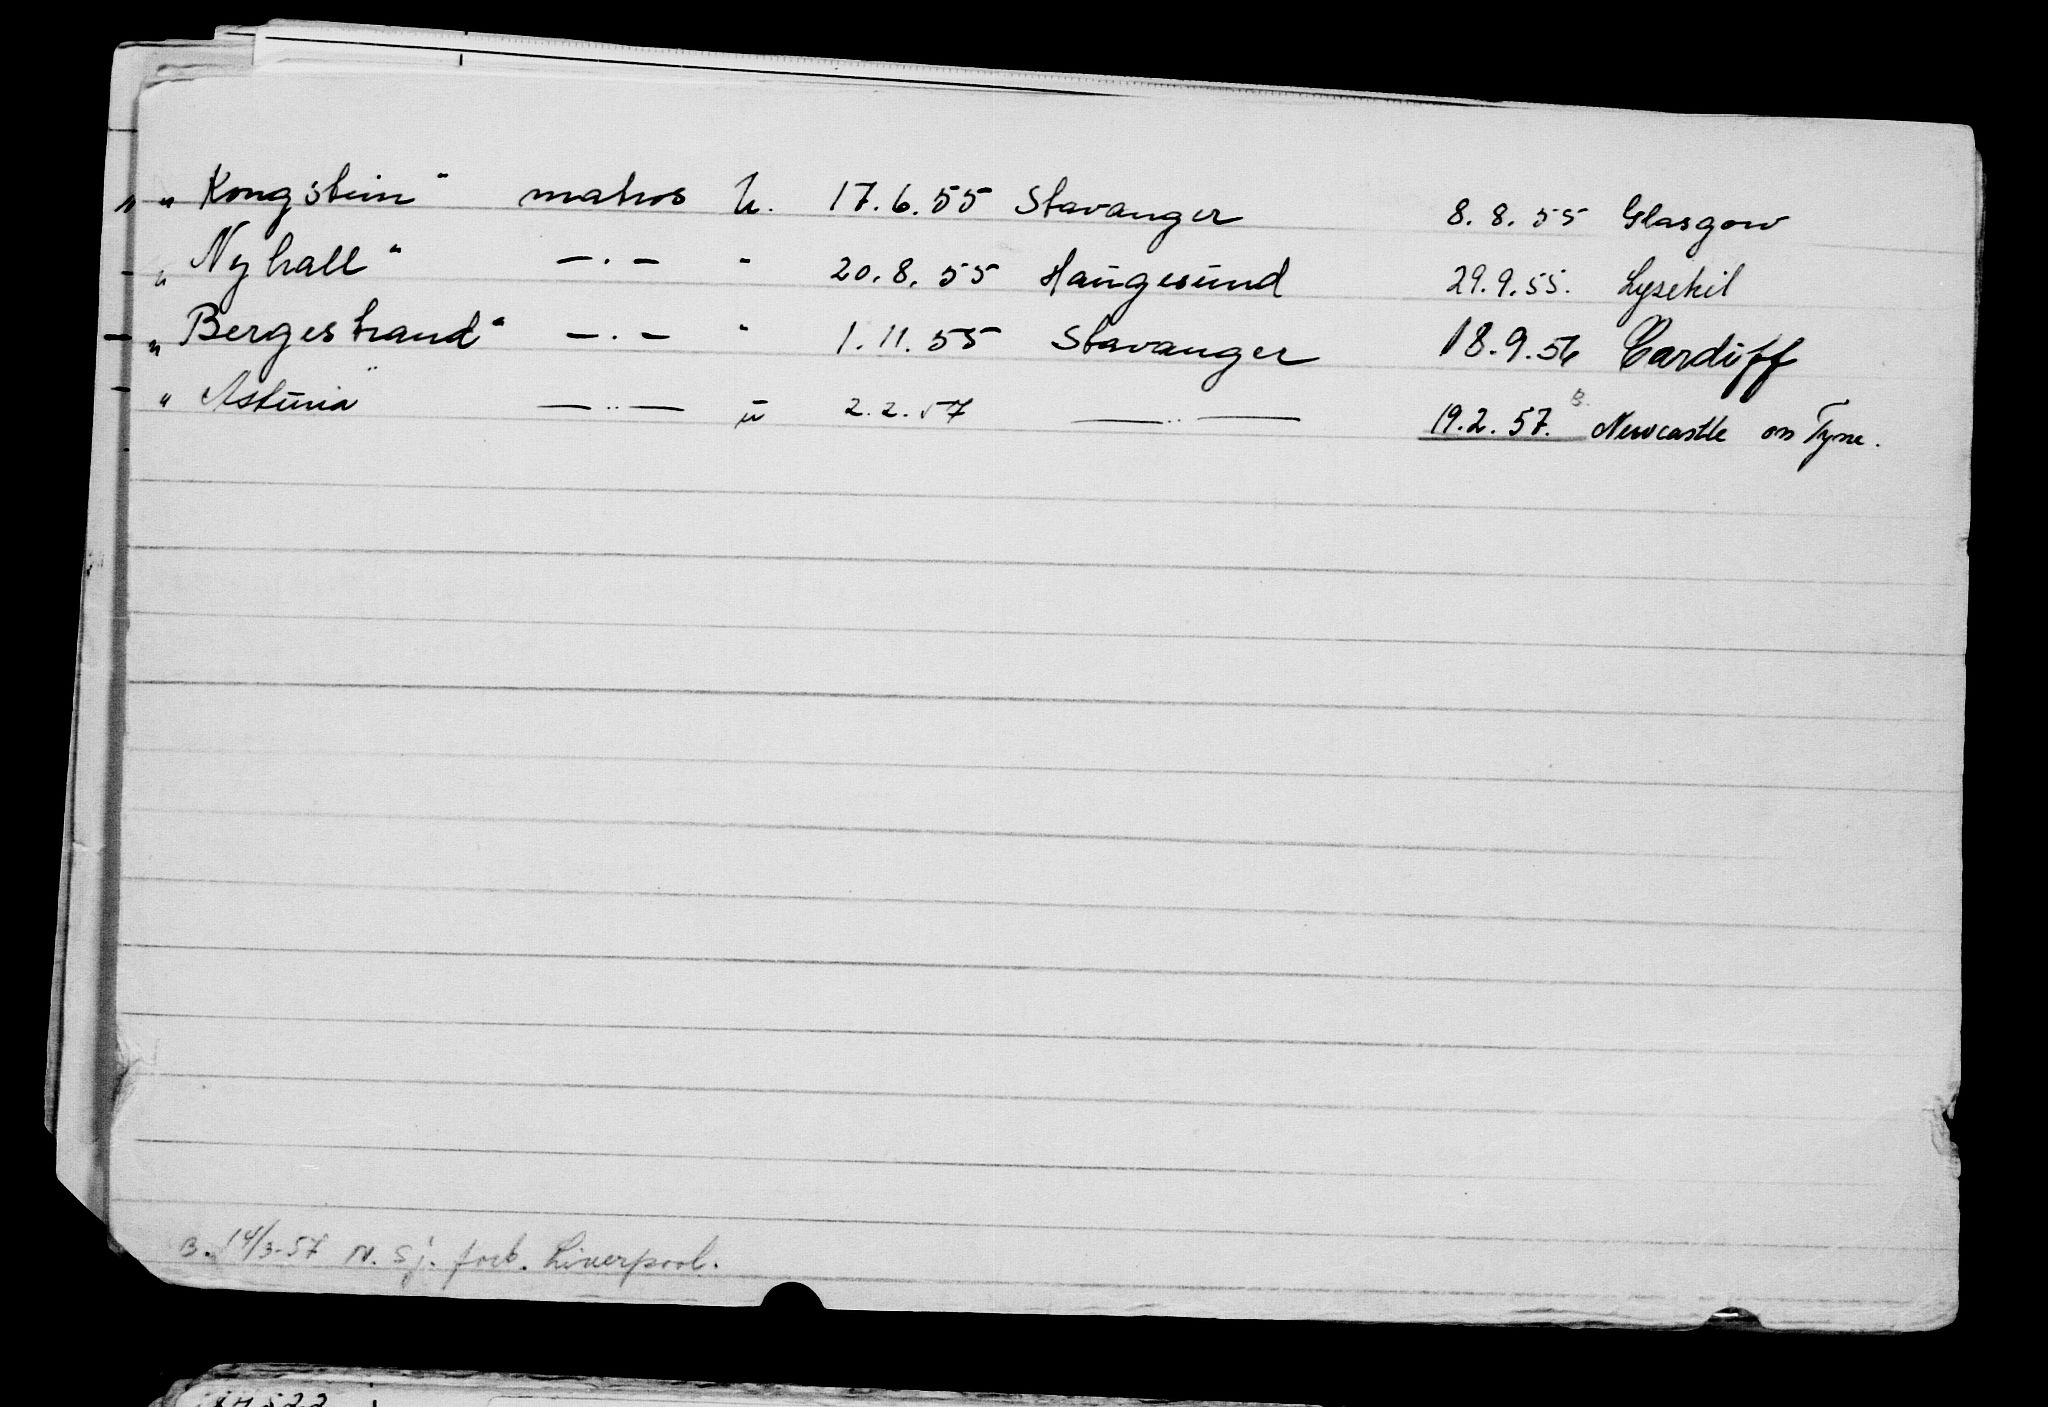 " " Kongstein" matros U. 17.6.55 Stavanger 8.8.55 Glasgow
- " Nyhall" — . — " 20.8.55 Haugesund 29.9.55. Lysekil
- " Bergestrand" — . — " 1.11.55 Stavanger 18.9.56 Cardiff
- " Asturia" — .. — u 2.2.57 — .. — 19.2.57. B. Newcastle on Tyne.
B. 14/3-57 N. Sj. forb. Liverpool.